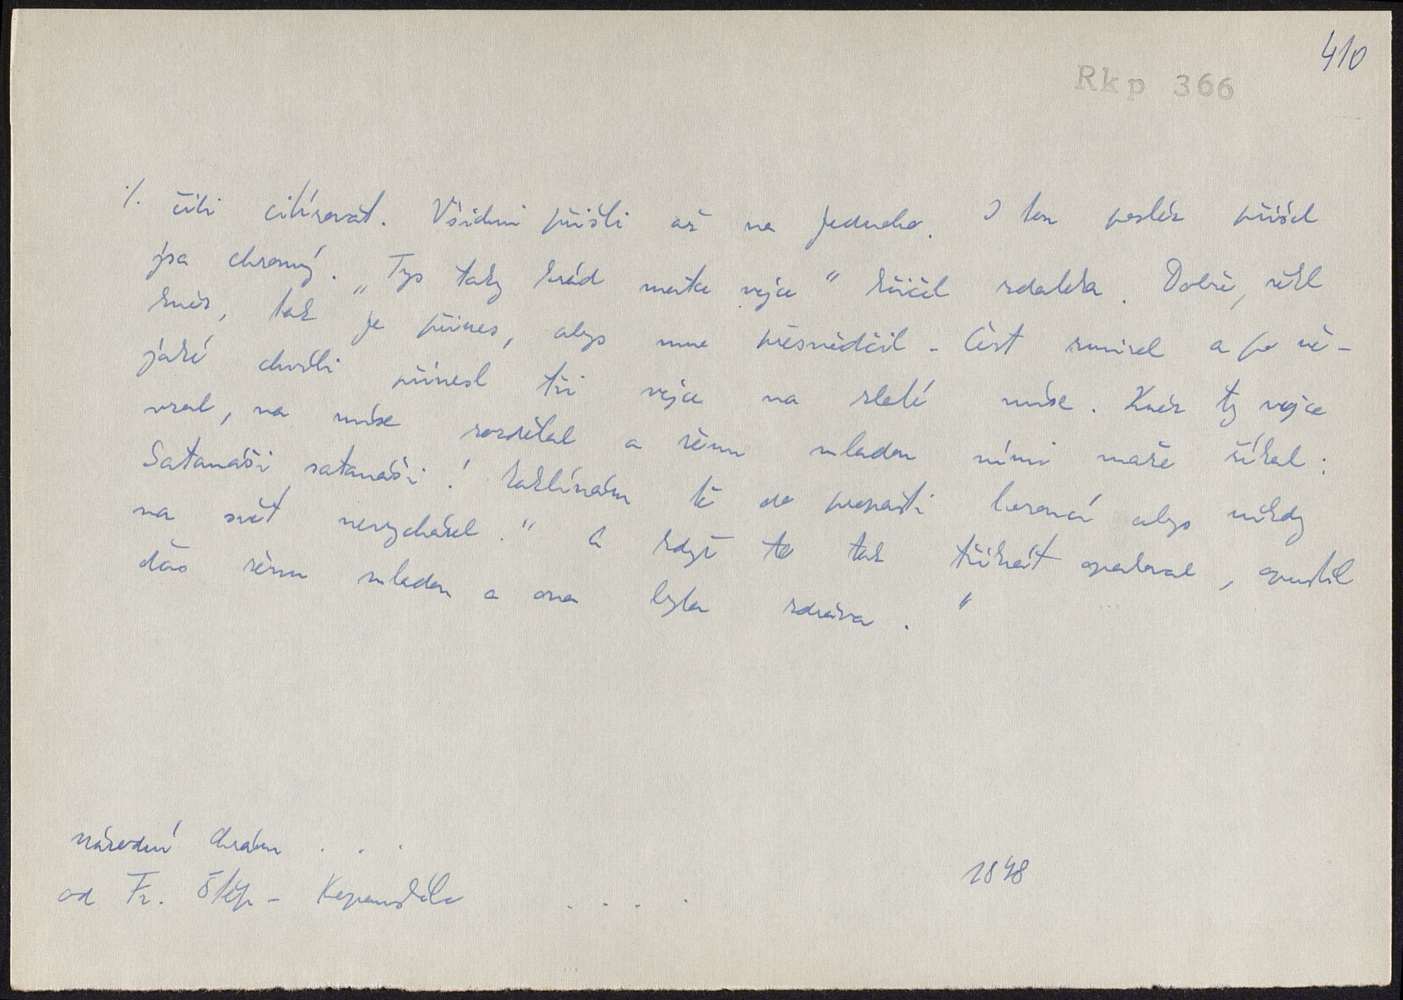 410
Rkp 366
./. čili citírovat. Všichni přišli až na jednoho. I ten posléz přišel
jsa chromý. "Tys taky krád vejce" křičel zdaleka. Dobře, řekl
kněz, tak je přines, abys mne přesvědčil - Čert zmizel a po ně-
jaké chvíli přinesl tři vejce na zlaté míse. Kněz ty vejce
vzal, na míse rozdělal a ženu mladou nimi maže říkal:
Satanáši, satanáši! Zaklínám tě do propasti horoucí abys nikdy
na svět nevycházel." A když to tak třikrát opakoval, opustil
ďas ženu mladou a ona byla zdráva."
národní chrám . . .
od Fr. Štěp - . . . . 1848